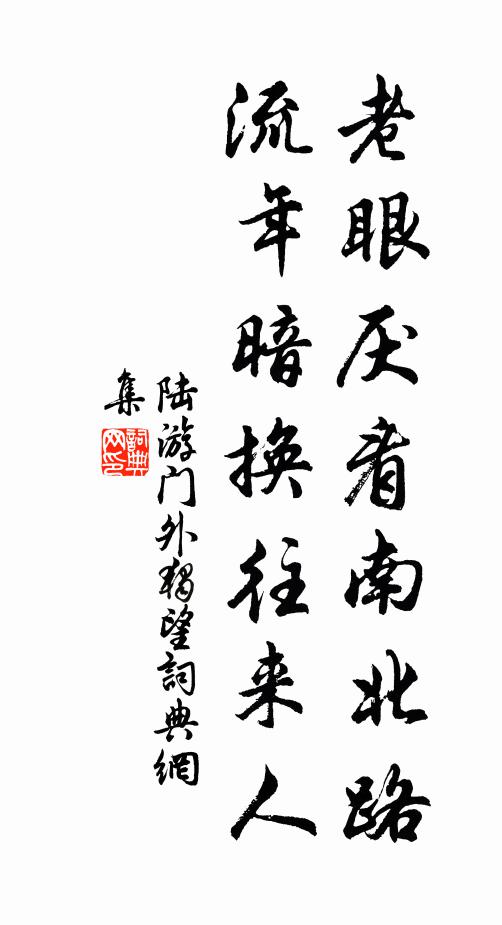 老眼厌看南北路
流年暗换往来人
陆游门外独望詞典網
集
詞典网印